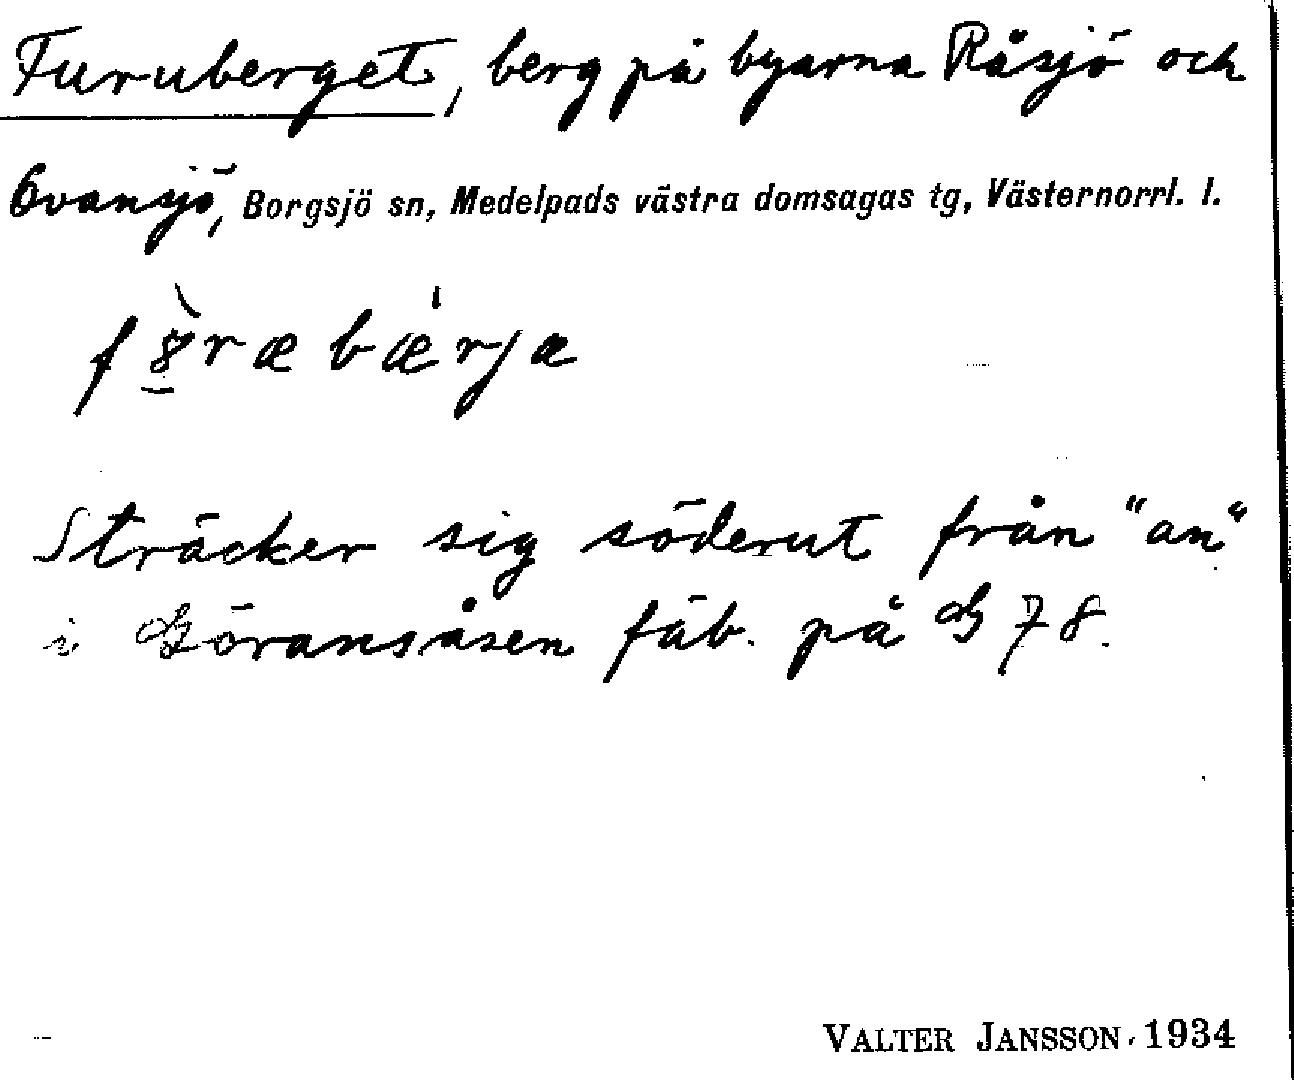 Furuberget, berg på byarna Råsjö och
Ovansjö, Borgsjö sn, Medelpads västra domsagas tg, Västernorrl. l.
f8̱̀ræbæ̍rjæ
Sträcker sig söderut från "an"
i Göransåsen fäb. på G 78.
VALTER JANSSON 1934